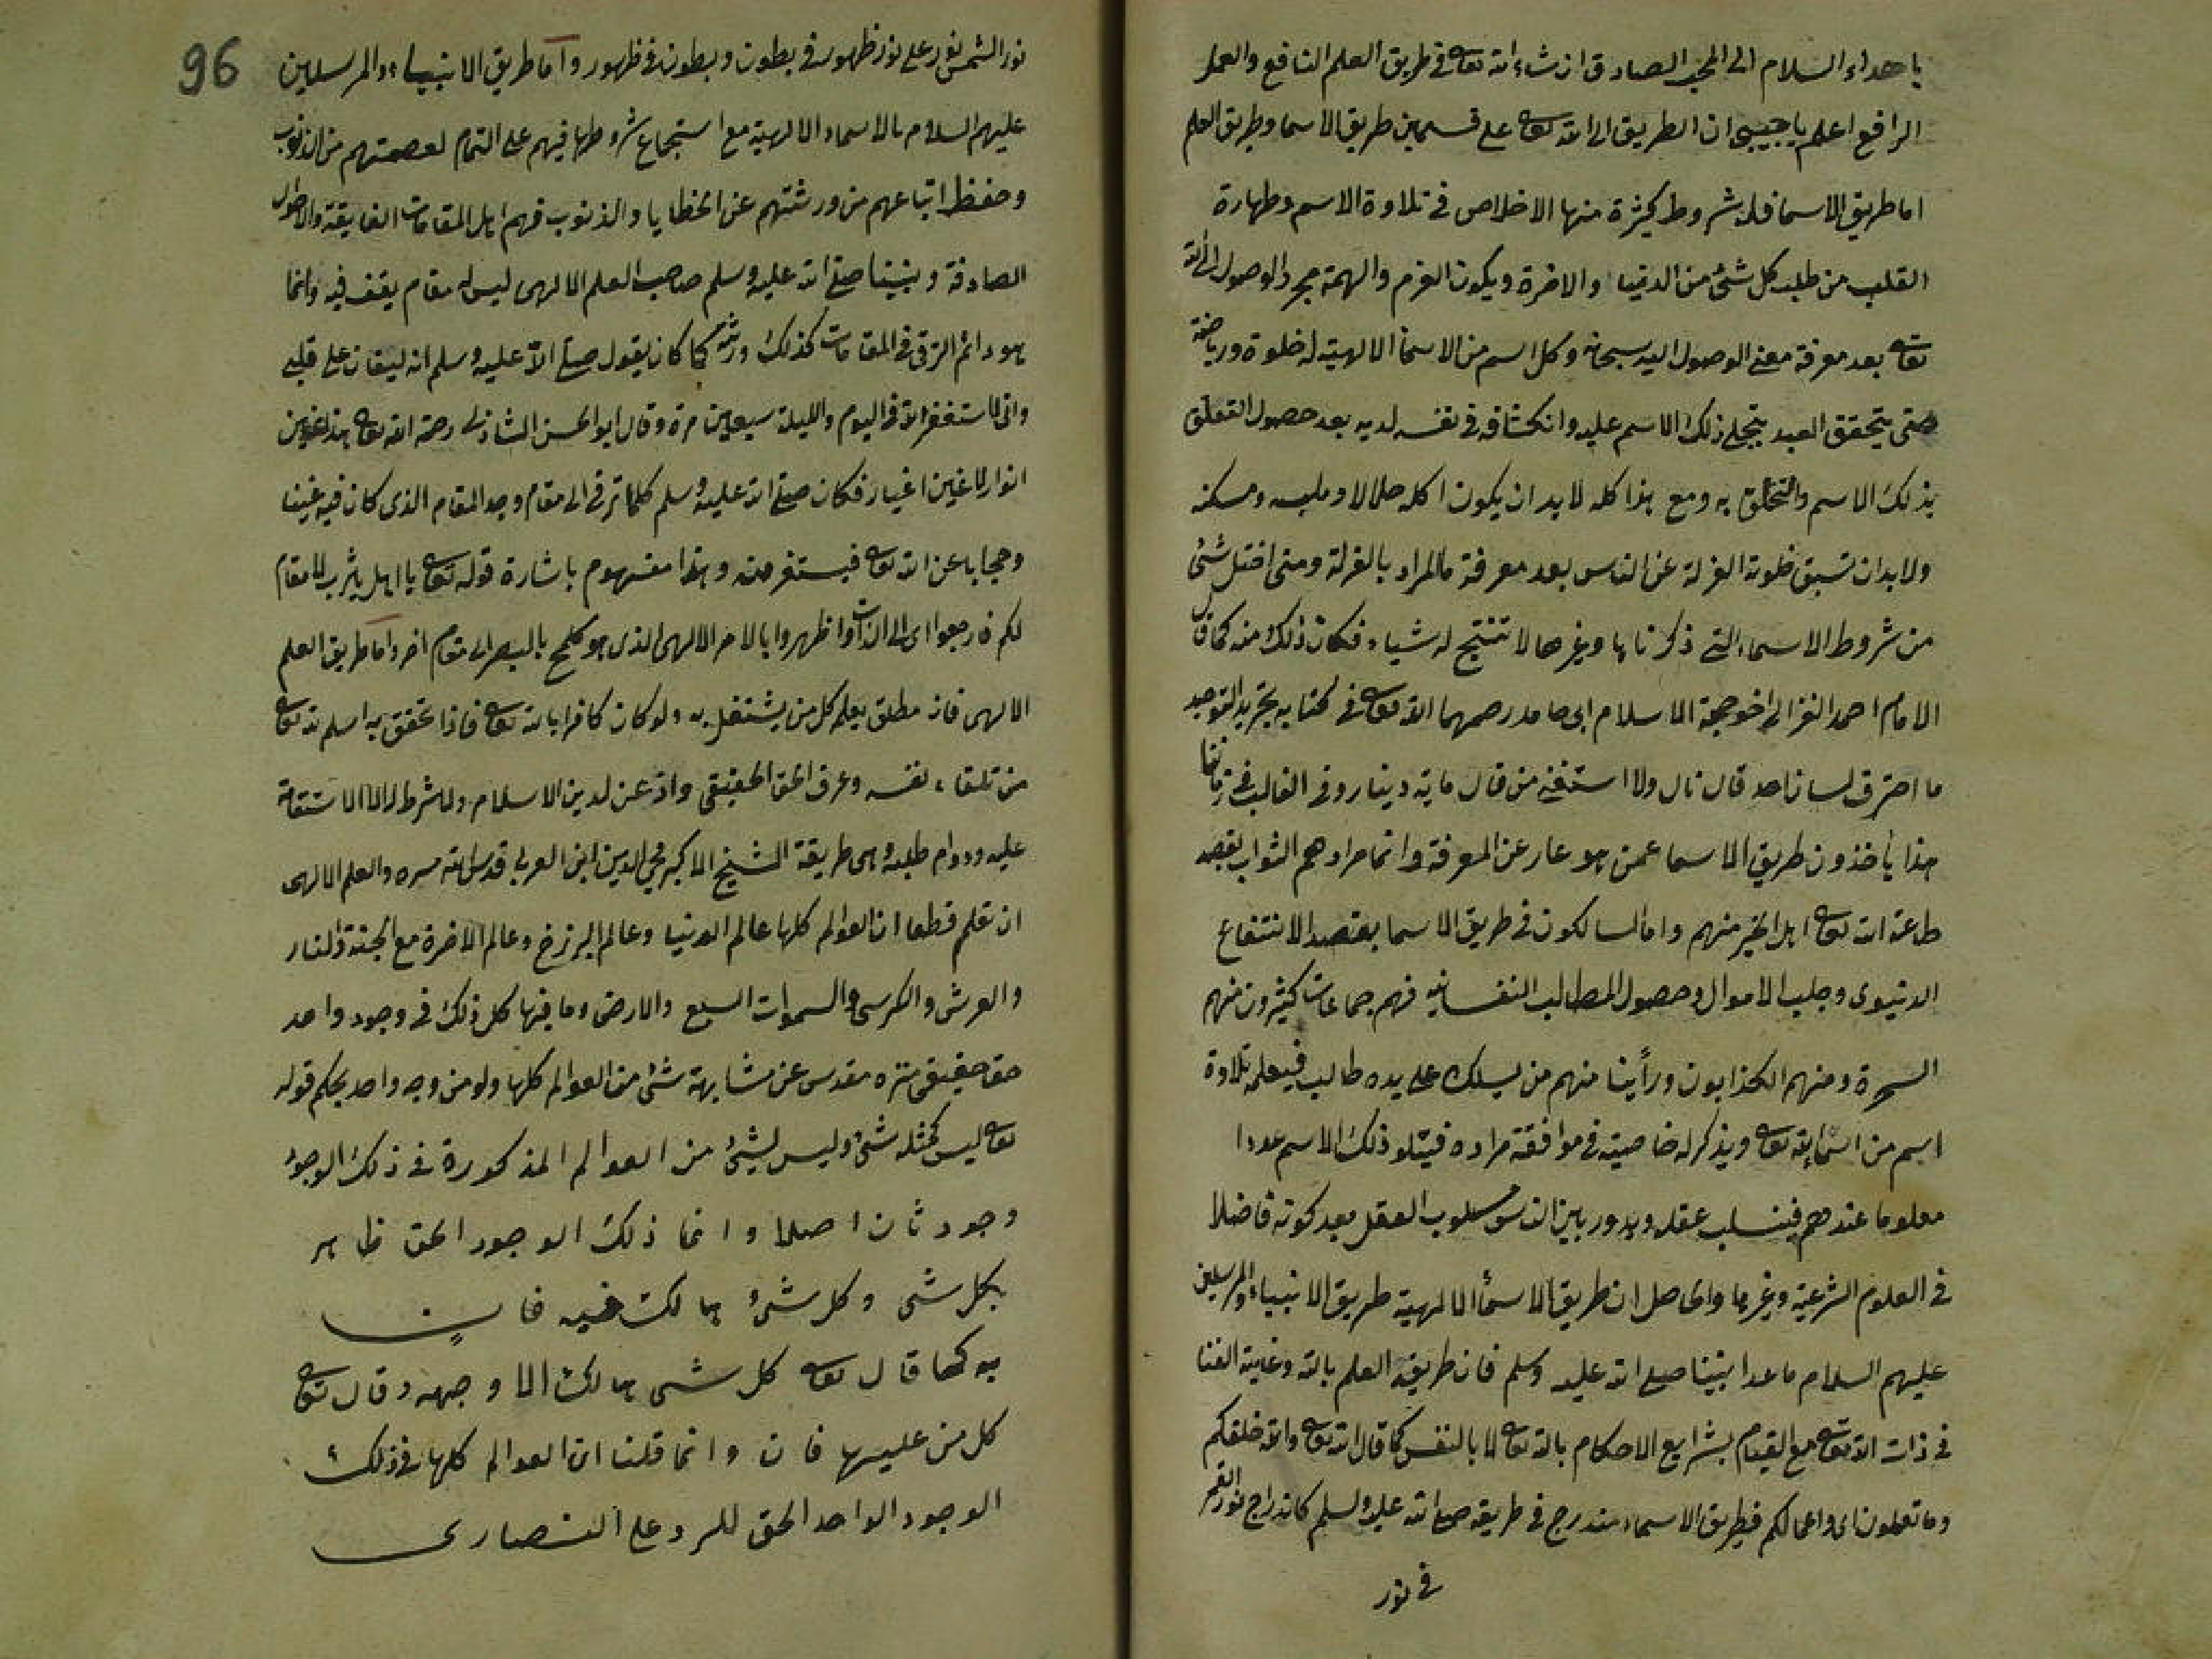 باهداء السلام الى المحب الصادق ان شاء الله تعالى في طريق العلم النافع والعمل
الرافع اعلم يا حبيبى ان الطريق الى الله تعالى على قسمين طريق الاسما وطريق العلم
اما طريق الاسما فله شروط كثيرة منها الاخلاص في تلاوة الاسم وطهارة
القلب من طلب كل شئ من الدنيا والاخرة ويكون العزم والهمة مجرد الوصول الى الله
تعالى بعد معرفة معنى الوصول اليه سبحانه وكل اسم من الاسماء الالهية له خلوة ورياضة
حتى يتحقق العبد بتجلى ذلك الاسم عليه وانكشافه في نفسه لديه بعد حصول التعلق
بذلك الاسم والتخلق به ومع هذا كله لابد ان يكون اكله حلالا وملبسه ومسكنه
ولا بد ان تسبق خلوته العزلة عن الناس بعد معرفة ما المراد بالعزلة ومتى اختل شئ
من شروط الاسماء التى ذكرناها وغيرها لا تنتج له شياء فكان ذلك منه كما قال
الامام احمد الغزالى اخو حجة الاسلام ابى حامد رحمهما الله تعالى في كتابه تجريد التوحيد
ما احترق لسان احد قال نار ولا استغنى من قال ماية دينار وفى الغالب في زماننا
هذا ياخذون طريق الاسما عمن هو عار عن المعرفة وانما مرادهم الثواب بقصد
طاعة الله تعالى اهل الخير منهم واما السالكون في طريق الاسما بقصد الانتفاع
الدنيوى وجلب الاموال وحصول المطالب النفسانية فهم جماعات كثيرون منهم
السحرة ومنهم الكذابون ورأينا منهم من يسلك على يده طالب فيعلمه تلاوة
اسم من اسماء الله تعالى ويذكر له خاصيته في موافقة مراده فيتلو ذلك الاسم عددا
معلوما عندهم فينسلب عقله ويدور بين الناس مسلوب العقل بعد كونه فاضلا
في العلوم الشرعية وغيرها والحاصل ان طريق الاسماء الالهية طريق الانبياء والمرسلين
عليهم السلام ما عدا نبينا صلى الله عليه وسلم فان طريقه العلم بالله وغاية الفنا
في ذات الله تعالى مع القيام بشرايع الاحكام بالله تعالى لا بالنفس كما قال الله تعالى والله خلقكم
وما تعملون اى واعمالكم فطريق الاسماء مندرج في طريقه صلى الله عليه وسلم كاندراج نور القمر
في نور
نور الشمس نور على نور ظهور في بطون وبطون في ظهور واما طريق الانبياء والمرسلين
عليهم السلام بالاسماء الالهية مع استجماع شروطها فيهم على التمام لعصمتهم من الذنوب
وحفظ اتباعهم من ورثتهم عن الخطايا والذنوب فهم اهل المقامات الفايقة والاحوال
الصادقة ونبينا صلى الله عليه وسلم صاحب العلم الالهى ليس له مقام يقف فيه وانما
هو دائم الترقى في المقامات كذلك ورثته كما كان يقول صلى الله عليه وسلم انه ليغان على قلبى
وانى لاستغفر الله في اليوم والليلة سبعين مرة وقال ابو الحسن الشاذلى رحمه الله تعالى هذا غين
انوار لا غين اغيار فكان صلى الله عليه وسلم كلما ترقى الى مقام وجد المقام الذى كان فيه غينا
وحجابا عن الله تعالى فيستغفر منه وهذا مفهوم باشارة قوله تعالى يا اهل يثرب لا مقام
لكم فارجعوا اى الى الذات واظهروا بالامر الالهى الذى هو كلمح بالبصر الى مقام اخر واما طريق العلم
الالهى فانه مطلق يعلمه كل من يشتغل به ولو كان كافرا بالله تعالى فاذا تحقق به اسلم لله تعالى
من تلقاء نفسه وعرف الحق الحقيقى واذعن لدين الاسلام ولا شرط له الا الاستقامة
عليه ودوام طلبه وهى طريقة الشيخ الاكبر محيى الدين ابن العربى قدس الله سره والعلم الالهى
ان تعلم قطعا ان العوالم كلها عالم الدنيا وعالم البرزخ وعالم الاخرة مع الجنة والنار
والعرش والكرسى والسموات السبع والارض وما فيها كل ذلك في وجود واحد
حق حقيقى منزه مقدس عن مشابهة شئ من العوالم كلها ولو من وجه واحد بحكم قوله
تعالى ليس كمثله شئ وليس لشئ من العوالم المذكورة في ذلك الوجود
وجود ثان اصلا وانما ذلك الوجود الحق ظاهر
بكل شى وكل شئ هالك فيه فان
به كما قال تعالى كل شى هالك الا وجهه وقال تعالى
كل من عليها فان وانما قلنا ان العوالم كلها في ذلك
الوجود الواحد الحق للرد على النصارى
96